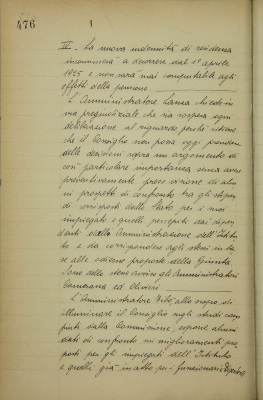 476
IV - La nuova indennità di residenza
incomincerà a decorrere dal 1° aprile
1925 e non sarà mai computabile agli
effetti della pensione.
L'Amministratore Lanza chiede in
via pregiudiziale che sia sospesa ogni
deliberazione al riguardo perché ritiene
che il Consiglio non possa oggi prendere
delle decisioni sopra un argomento di
così particolare importanza senza aver
preventivamente preso visione di alcu-
ni progetti di confronto fra gli stipen-
di corrisposti dallo Stato per i suoi
impiegati e quelli percepiti dai dipen-
denti della Amministrazione dell'Istitu-
to e da corrispondere agli stessi in ba-
se alle odierne proposte della Giunta.
Sono dello stesso avviso gli Amministratori
ed Olivieri.
L'Amministratore allo scopo di
illuminare il Consiglio sugli studi com-
piuti dalla Commissione, espone alcuni
dati di confronto sui miglioramenti pro-
posti per gli impiegati dell'Istituto
e quelli già in atto per i funzionari